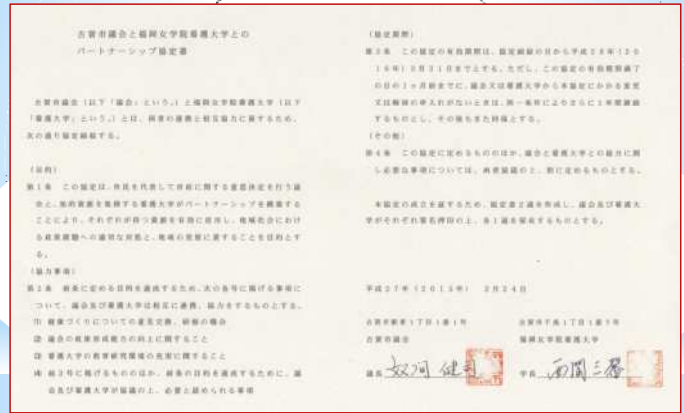 古賀市議会と福岡女学院看護大学との
パートナーシップ協定書
古賀市議会(以下「議会」という。)と福岡女学院看護大学(以下
「看護大学」という。)とは、両者の連携と相互協力に資するため、
次の通り協定締結する。
(目的)
第1条 この協定は、市民を代表して市政に関する意思決定を行う議
会と、知的資源を集積する看護大学がパートナーシップを構築する
ことにより、それぞれが持つ資源を有効に活用し、地域社会におけ
る政策課題への適切な対処と、地域の発展に資することを目的とす
る。
(協力事項)
第2条 前条に定める目的を達成するため、次の各号に掲げる事項に
ついて、議会及び看護大学は相互に連携、協力をするものとする。
(1) 健康づくりについての意見交換、研修の機会
(2) 議会の政策形成能力の向上に関すること
(3) 看護大学の教育研究環境の充実に関すること
(4) 前3号に掲げるもののほか、前条の目的を達成するために、議
会及び看護大学が協議の上、必要と認められる事項
(協定期間)
第3条 この協定の有効期間は、協定締結の日から平成28年(20
16年)3月31日までとする。ただし、この協定の有効期間満了
の日の1ヶ月前までに、議会又は看護大学から本協定にかかる変更
又は解除の申入れがないときは、同一条件によりさらに1年間継続
するものとし、その後もまた同様とする。
(その他)
第4条 この協定に定めるもののほか、議会と看護大学との協力に関
し必要な事項については、両者協議の上、別に定めるものとする。
本協定の成立を証するため、協定書2通を作成し、議会及び看護大
学がそれぞれ署名押印の上、各1通を保有するものとする。
平成27年(2015年) 3月24日
古賀市駅東1丁目1番1号
古賀市議会
議長 奴間 健司
古賀市千鳥1丁目1番7号
福岡女学院看護大学
学長 西間 三馨